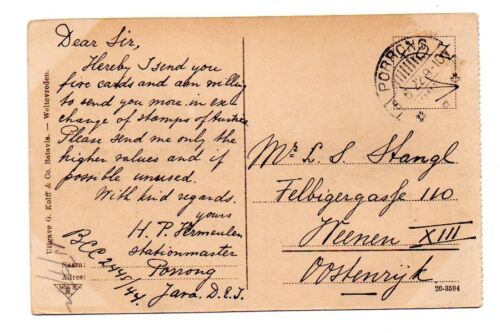 Dear Sir,
Hereby I send you
five cards and am willing
to send you more in ex-
change of stamps of
Please send me only the
higher values and if
possible unused.
With kind regards.
yours
H. P. Hermeulen
Stationmaster
Porrong
Java. D.E.I.
BCC 244/44.
Naam:
Adres:
Uitgave G. Kolff & Co. Batavia. — Weltevreden.
PORRONG
Mr L. S. Stangl
Felbigergasse 110
Weenen XIII
Oostenrijk
20-3594